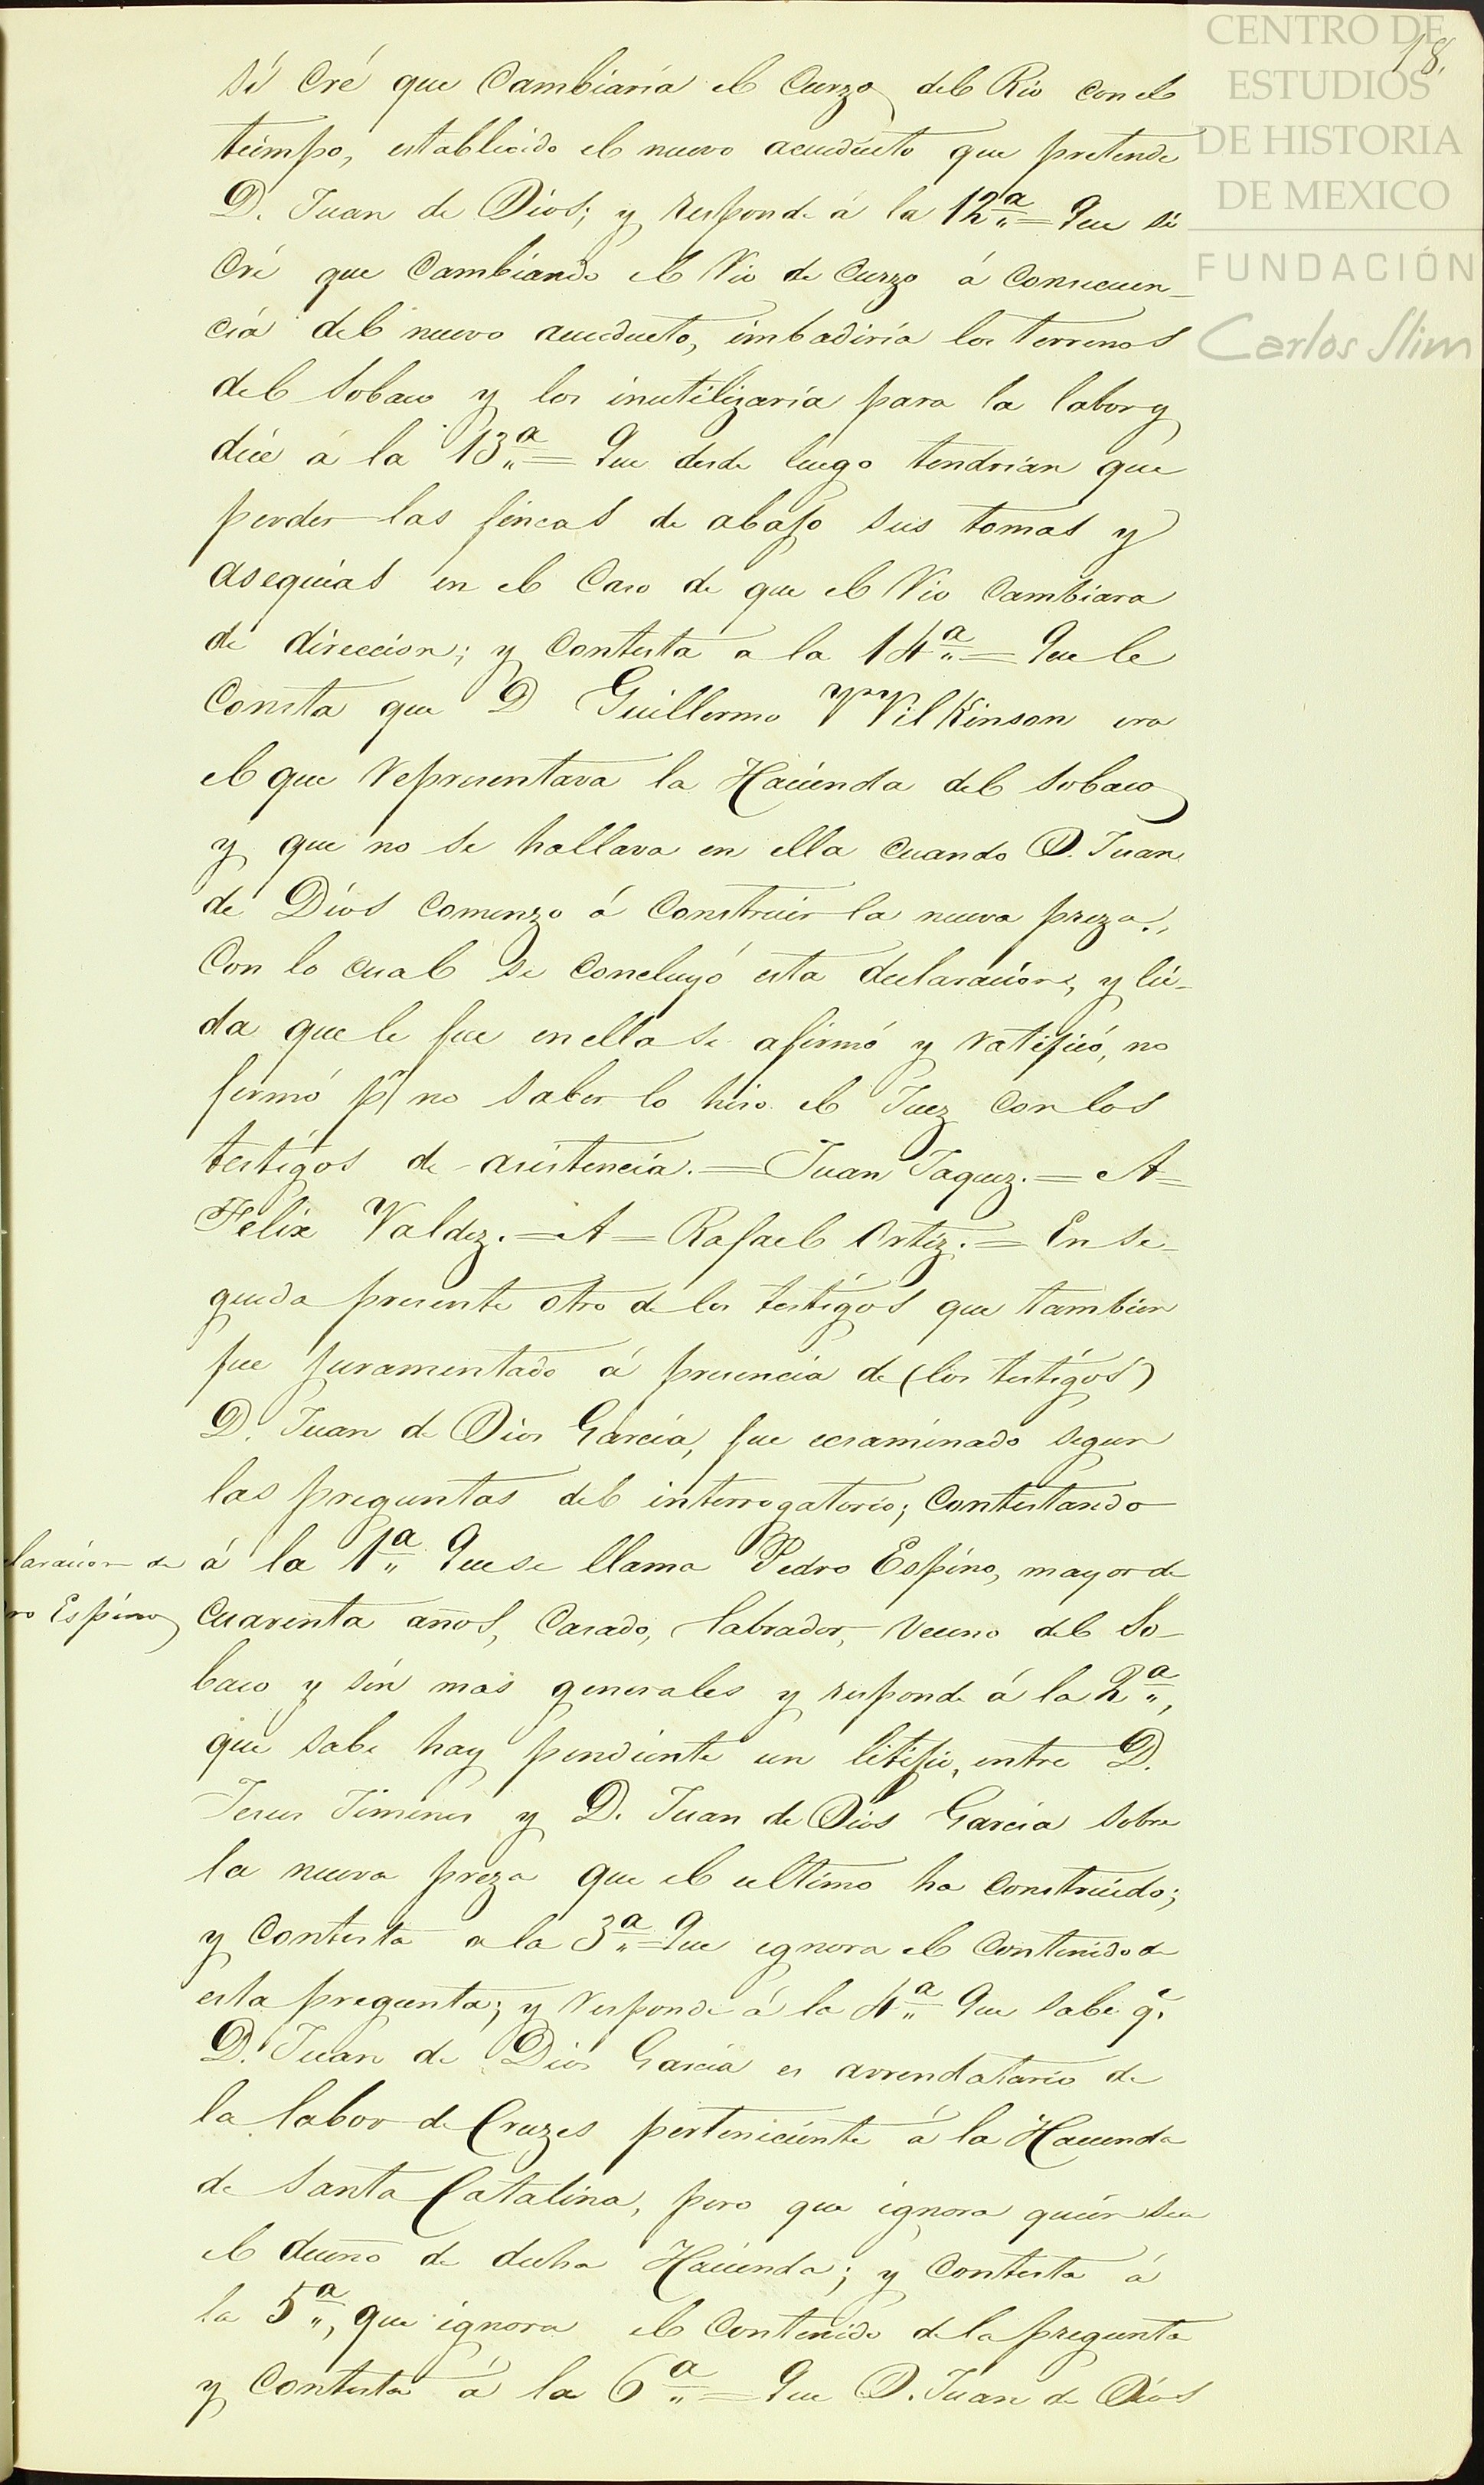 CENTRO DE
ESTUDIOS
DE HISTORIA
DE MEXICO
FUNDACIÓN
Carlos Slim
18.
sí cré que cambiaría el curzo del Rio con el
tiempo, establecido el nuevo acueducto que pretende
D. Juan de Dios; y responde á la 12ª = Que si
cré que cambiando el Rio de curzo á consecuen-
cia del nuevo acueducto, imbadiría los terrenos
del Sobaco y los inutilizaría para la labor y
dice á la 13ª = Que desde luego tendrian que
perder las fincas de abajo sus tomas y
asequias en el caso de que el Rio cambiara
de direccion; y contesta a la 14ª = Que le
consta que D Guillermo Wilkinson era
el que representava la Hacienda del Sobaco
y que no se hallava en ella cuando D. Juan
de Dios comenzo á construir la nueva preza.,
Con lo cual se concluyó esta declaracion, y léi-
da que le fue en ella se afirmó y ratificó, no
firmó pr no saber lo hiso el Juez con los
testigos de asistencia. = Juan Jaquez. = A =
Felix Valdez. = A = Rafael Ortiz. = En se-
guida presente otro de los testigos que tambien
fue juramentado á presencia de (los testigos)
D. Juan de Dios García, fue ecsaminado segun
las preguntas del interrogatorio; contestando
claracion de
ro Espino
á la 1ª Que se llama Pedro Espino, mayor de
cuarenta años, casado, labrador, vecino del So-
baco y sin mas generales y responde á la 2ª,
que sabe hay pendiente un litijio, entre D.
Jesus Jimenes y D. Juan de Dios García sobre
la nueva preza que el ultimo ha construido;
y contesta a la 3ª = Que ignora el contenido de
esta pregunta; y responde á la 4ª Que sabe q.
D. Juan de Dios García es arrendatario de
la labor de Cruzes perteniciente á la Hacienda
de Santa Catalina, pero que ignora quién sea
el dueño de dicha Hacienda; y contesta á
la 5ª, que ignora el contenido de la pregunta
y contesta á la 6ª = Que D. Juan de Dios